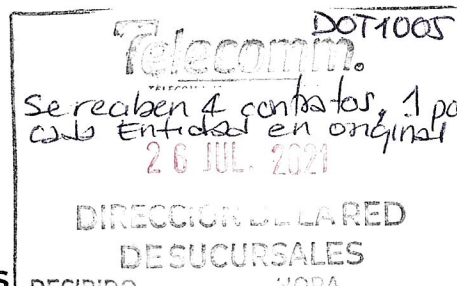 DOT1005
Telecomm.
Se reciben 4 contratos, 1 po
cada Entidad en original
26 JUL. 2021
DIRECCION DE LA RED
DE SUCURSALES
S RECIBIDO HORA